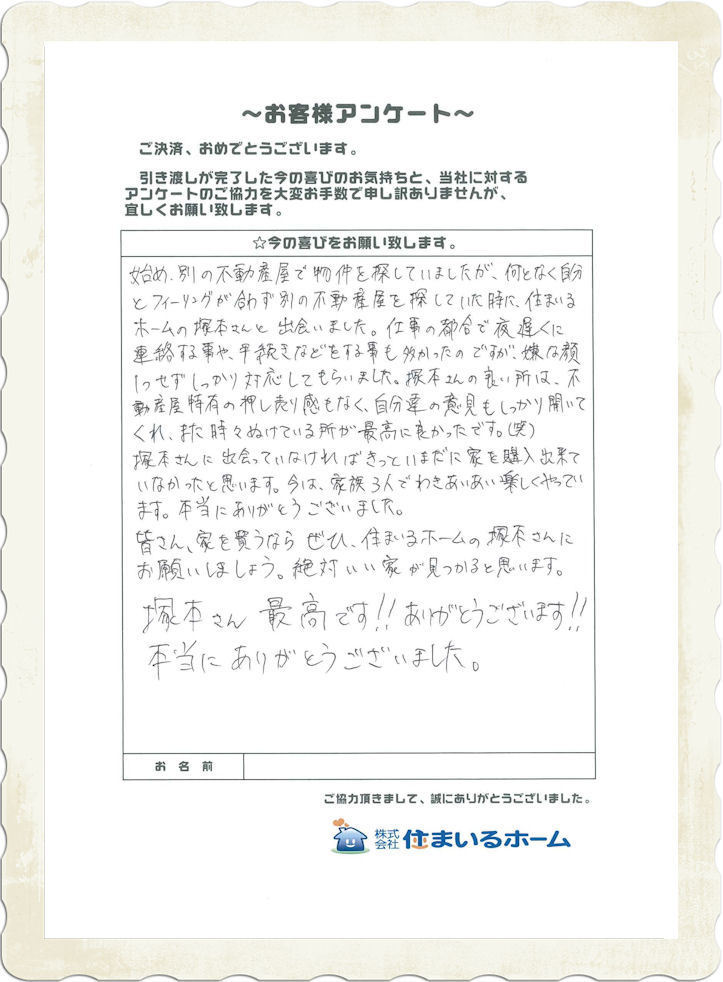 ～お客様アンケート～
ご決済、おめでとうございます。
引き渡しが完了した今の喜びのお気持ちと、当社に対する
アンケートのご協力を大変お手数で申し訳ありませんが、
宜しくお願い致します。
☆今の喜びをお願い致します。
始め、別の不動産屋で物件を探していましたが、何となく自分
とフィーリングが合わず別の不動産屋を探していた時に、住まいる
ホームの塚本さんと出会いました。仕事の都合で夜遅くに
連絡する事や、手続きなどをする事も多かったのですが、嫌な顔
1つせずしっかり対応してもらいました。塚本さんの良い所は、不
動産屋特有の押し売り感もなく、自分達の意見もしっかり聞いて
くれ、また時々ぬけている所が最高に良かったです。(笑)
塚本さんに出会っていなければきっといまだに家を購入出来て
いなかったと思います。今は、家族3人でわきあいあい楽しくやってい
ます。本当にありがとうございました。
皆さん、家を買うなら ぜひ、住まいるホームの塚本さんに
お願いしましょう。絶対いい家が見つかると思います。
塚本さん 最高です!! ありがとうございます!!
本当にありがとうございました。
お名前
ご協力頂きまして、誠にありがとうございました。
株式会社 住まいるホーム